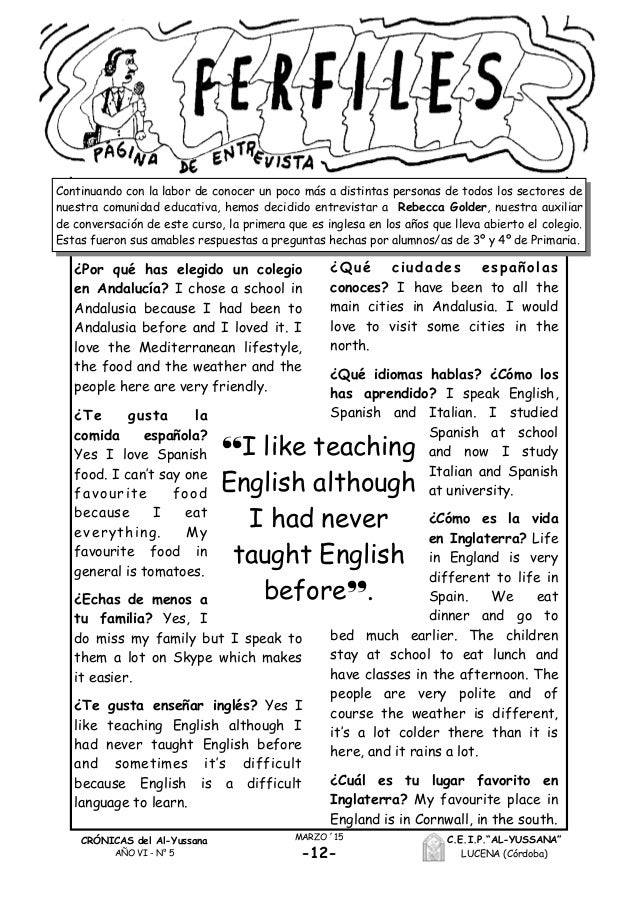 PERFILES
PÁGINA DE ENTREVISTA
Continuando con la labor de conocer un poco más a distintas personas de todos los sectores de
nuestra comunidad educativa, hemos decidido entrevistar a Rebecca Golder, nuestra auxiliar
de conversación de este curso, la primera que es inglesa en los años que lleva abierto el colegio.
Estas fueron sus amables respuestas a preguntas hechas por alumnos/as de 3º y 4º de Primaria.
¿Por qué has elegido un colegio
en Andalucía? I chose a school in
Andalusia because I had been to
Andalusia before and I loved it. I
love the Mediterranean lifestyle,
the food and the weather and the
people here are very friendly.
¿Te gusta la
comida española?
Yes I love Spanish
food. I can’t say one
favourite food
because I eat
everything. My
favourite food in
general is tomatoes.
¿Echas de menos a
tu familia? Yes, I
do miss my family but I speak to
them a lot on Skype which makes
it easier.
¿Te gusta enseñar inglés? Yes I
like teaching English although I
had never taught English before
and sometimes it’s difficult
because English is a difficult
language to learn.
“I like teaching
English although
I had never
taught English
before”.
¿Qué ciudades españolas
conoces? I have been to all the
main cities in Andalusia. I would
love to visit some cities in the
north.
¿Qué idiomas hablas? ¿Cómo los
has aprendido? I speak English,
Spanish and Italian. I studied
Spanish at school
and now I study
Italian and Spanish
at university.
¿Cómo es la vida
en Inglaterra? Life
in England is very
different to life in
Spain. We eat
dinner and go to
bed much earlier. The children
stay at school to eat lunch and
have classes in the afternoon. The
people are very polite and of
course the weather is different,
it’s a lot colder there than it is
here, and it rains a lot.
¿Cuál es tu lugar favorito en
Inglaterra? My favourite place in
England is in Cornwall, in the south.
CRÓNICAS del Al-Yussana
AÑO VI - Nº 5
MARZO ´15
-12-
C.E.I.P.“AL-YUSSANA”
LUCENA (Córdoba)